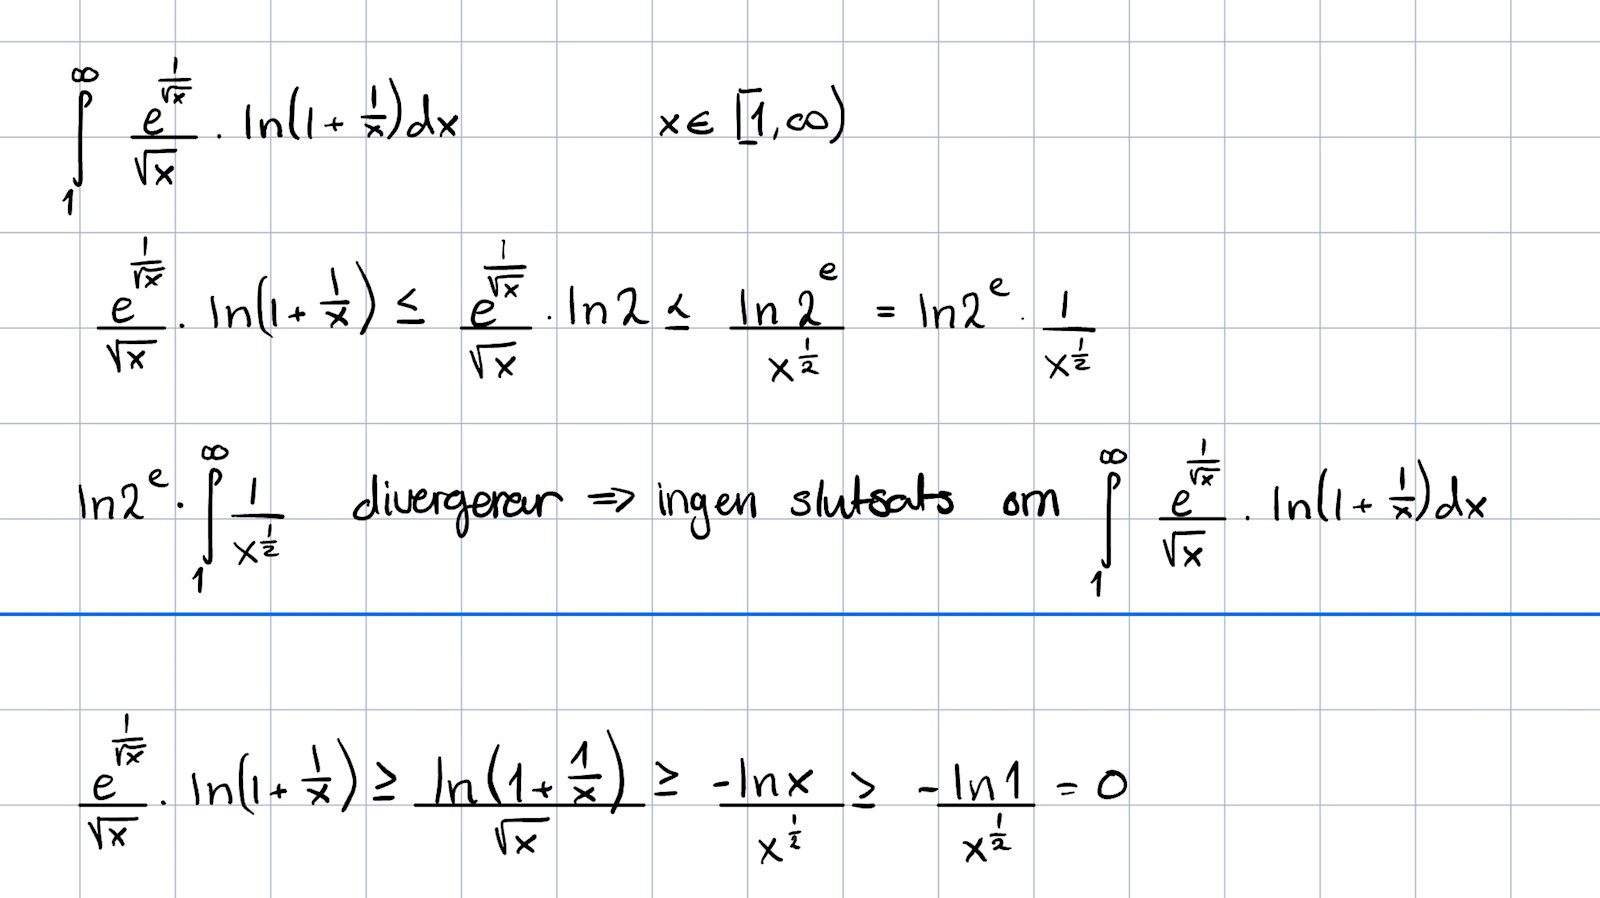 ∫₁^∞ e^{1/√x}/√x · ln(1+1/x)dx x∈[1,∞)
e^{1/√x}/√x · ln(1+1/x) ≤ e^{1/√x}/√x · ln2 ≤ ln2^e/x^{1/2} = ln2^e · 1/x^{1/2}
ln2^e · ∫₁^∞ 1/x^{1/2} divergerar ⇒ ingen slutsats om ∫₁^∞ e^{1/√x}/√x · ln(1+1/x)dx
e^{1/√x}/√x · ln(1+1/x) ≥ ln(1+1/x)/√x ≥ -lnx/x^{1/2} ≥ -ln1/x^{1/2} = 0